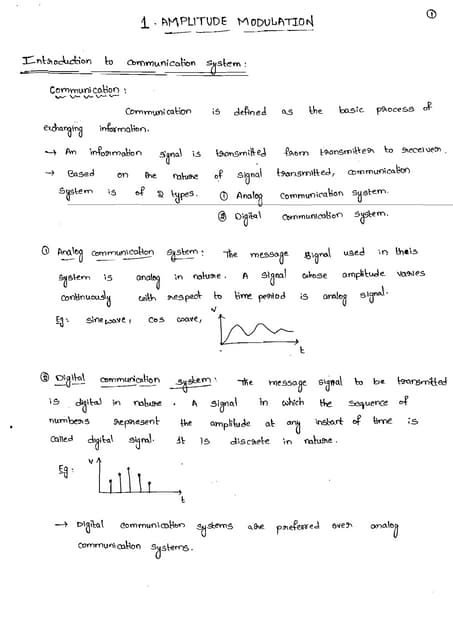 ①
1. AMPLITUDE MODULATION
Introduction to communication system:
Communication:
Communication is defined as the basic process of
exchanging information.
→ An information signal is transmitted from transmitter to receiver.
→ Based on the nature of signal transmitted, communication
system is of 2 types. ① Analog communication system.
② Digital communication system.
① Analog communication system: The message signal used in this
system is analog in nature. A signal whose amplitude varies
continuously with respect to time period is analog signal.
Eg: sine wave, cos wave,
v
t
② Digital communication system: The message signal to be transmitted
is digital in nature. A signal in which the sequence of
numbers represent the amplitude at any instant of time is
called digital signal. It is discrete in nature.
Eg:
v
t
→ Digital communication systems are preferred over analog
communication systems.